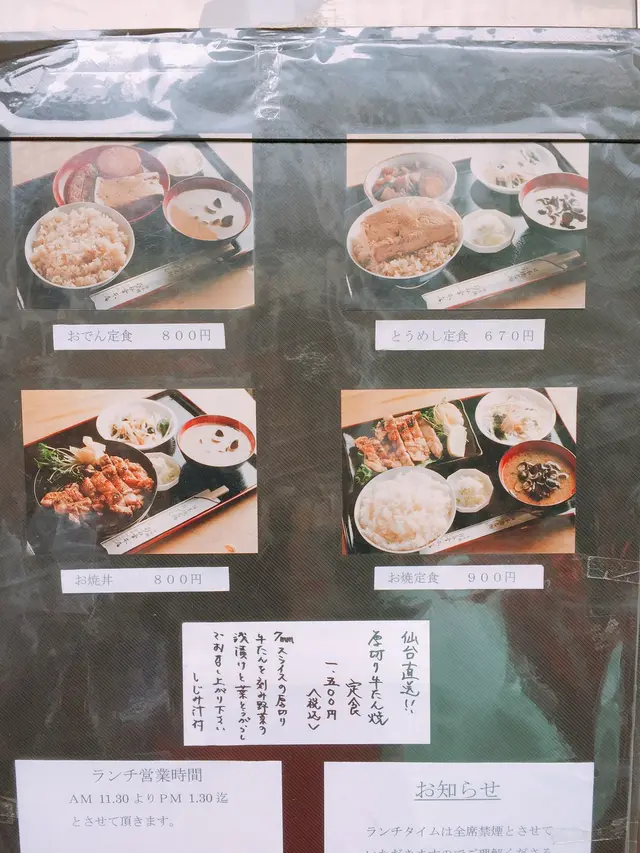 おでん定食 ８００円
とうめし定食 ６７０円
お焼丼 ８００円
お焼定食 ９００円
仙台直送!!
厚切り牛たん焼
定食
一、五〇〇円
(税込)
7mmスライスの厚切り
牛たんを刻み野菜の
浅漬けと葉とうがらし
でお召し上がり下さい
しじみ汁付
ランチ営業時間
AM 11.30よりPM 1.30迄
とさせて頂きます。
お知らせ
ランチタイムは全席禁煙とさせて
いただきますのでご理解くださる